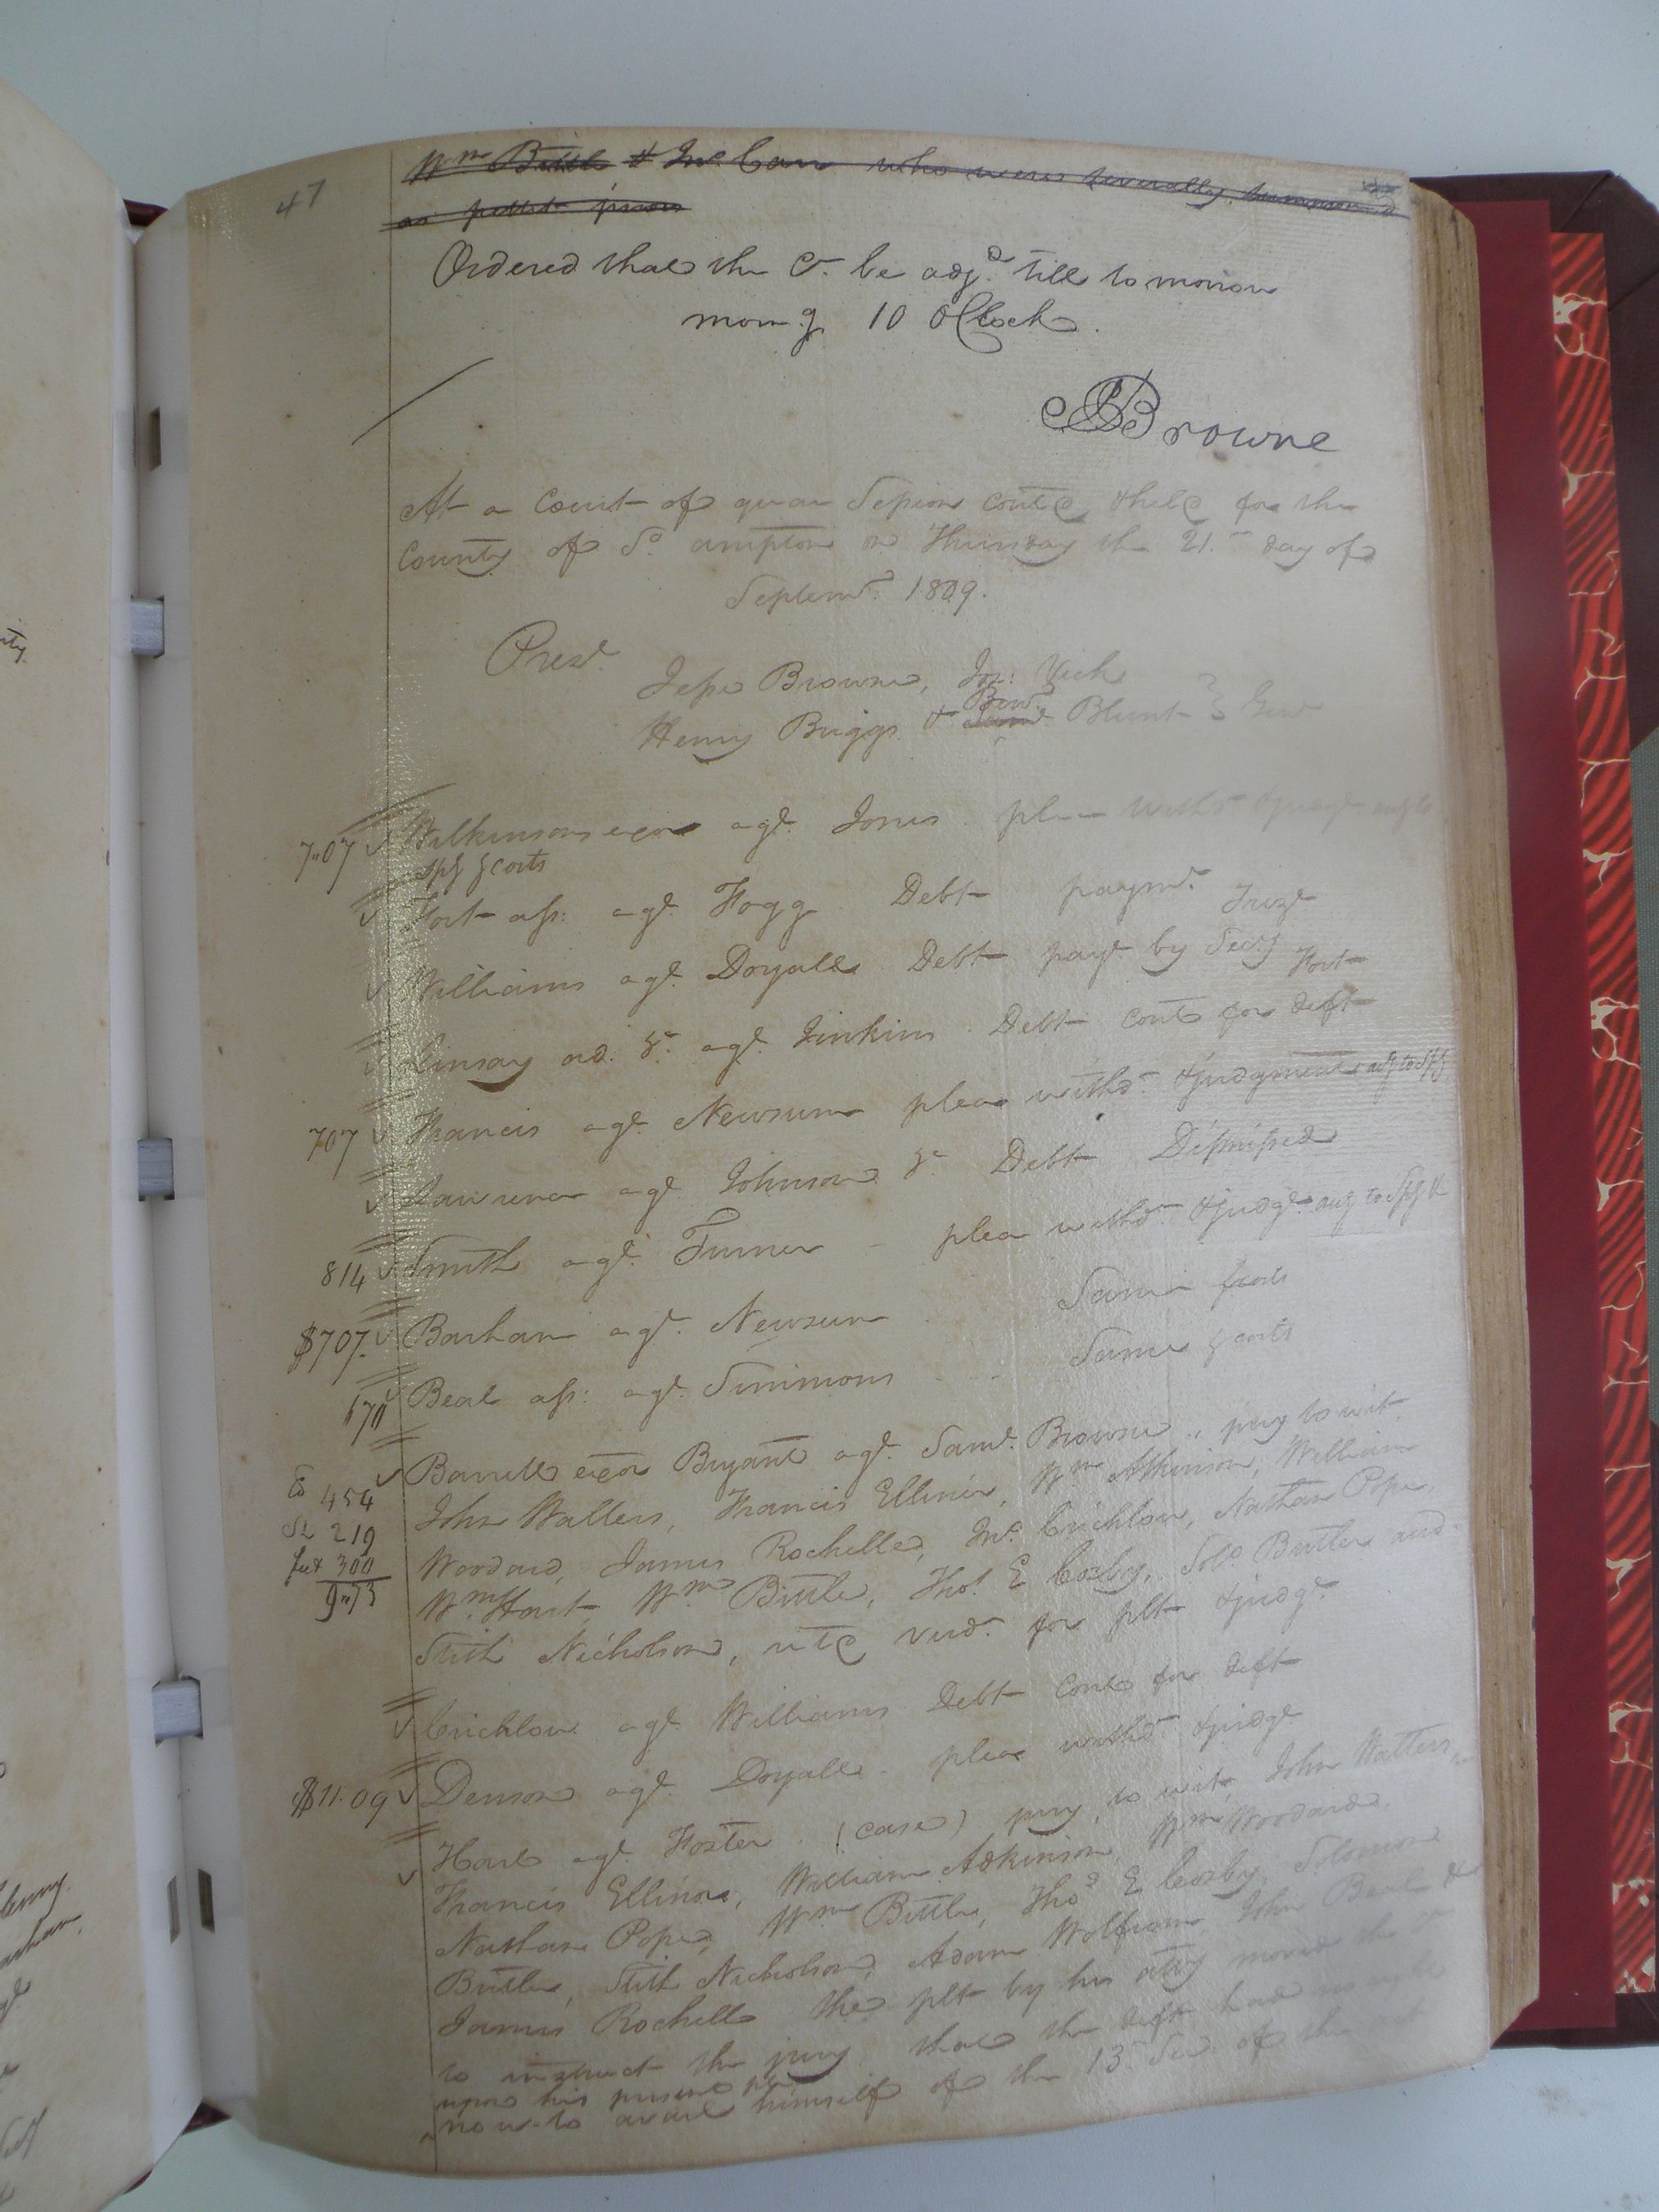 47
Wm Bittle & Jno. Carr who were severally summoned
as pettit jurors
Ordered that the Ct. be adjd. till to morrow
morng. 10 OClock.
JBrowne
At a Court of quar Session contd & held for the
County of So. ampton on Thursday the 21st day of
Septemr. 1809.
Prest.
Jesse Browne, Jos: Vick
Henry Briggs & Benj. Blunt } Gent
7"07 Wilkinsons exor agt. Jones plea withd & judgt
spf & costs
Fort ass: agt. Fogg Debt paymt.
Trezt
Williams agt. Doyall Debt payt by Secy
Fort
Linsay ad. &c. agt. Jinkins Debt contd for deft
707 Francis agt. Newsum plea withd. & judgment agt to spf
Lawrence agt. Johnson &c Debt Dismissed
814 Smith agt. Turner - plea withd. & judgt. agt to spf
$707. Barham agt. Newsum Same & costs
670 Beal ass: agt. Simmons Same & costs
Co 454 Barrett exor Bryant agt. Saml. Browne, jury to wit.
Sh 219 John Watters, Francis Ellinor, Wm Atkinson, William
fee 300 Woodard, James Rochelle, Jno. Crichlow, Nathan Pope,
9"73 Wm Hart Wm Bittle, Thos. E Cosby, Solo Butler and
Stith Nicholson, utc verd. for plt & judgt.
Crichlow agt Williams Debt Contd for deft
$11.09 Denson agt. Doyall. plea withd. & judgt
Hart agt. Foster. (case) jury, to wit, John Watters,
Francis Ellinor, William Adkinson, Wm Woodard,
Nathan Pope, Wm Bittle, Thos E Cosby, Solomon
Butler, Stith Nicholson, Adam Wolfram John Beal &
James Rochelle the plt by his atty moved the Ct
to instruct the jury that the deft had no right
upon his present plea
now to avail himself of the 13th Sec. of the act